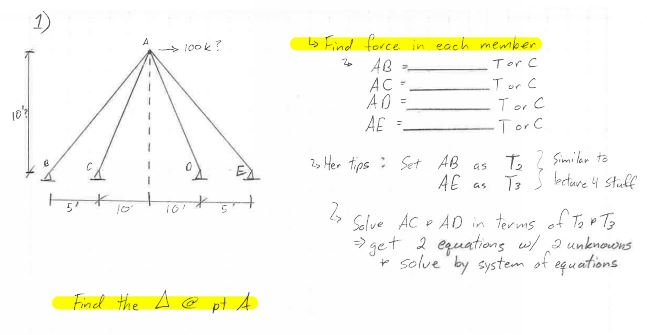 1)
A
→ 100k?
10'?
B
C
D
E
5'
10'
10'
5'
Find the Δ @ pt A
↳ Find force in each member
AB = ________ T or C
AC = ________ T or C
AD = ________ T or C
AE = ________ T or C
Her tips : Set AB as T₂ } Similar to
AE as T₃ lecture 4 stuff
Solve AC & AD in terms of T₂ & T₃
⇒ get 2 equations w/ 2 unknowns
& solve by system of equations